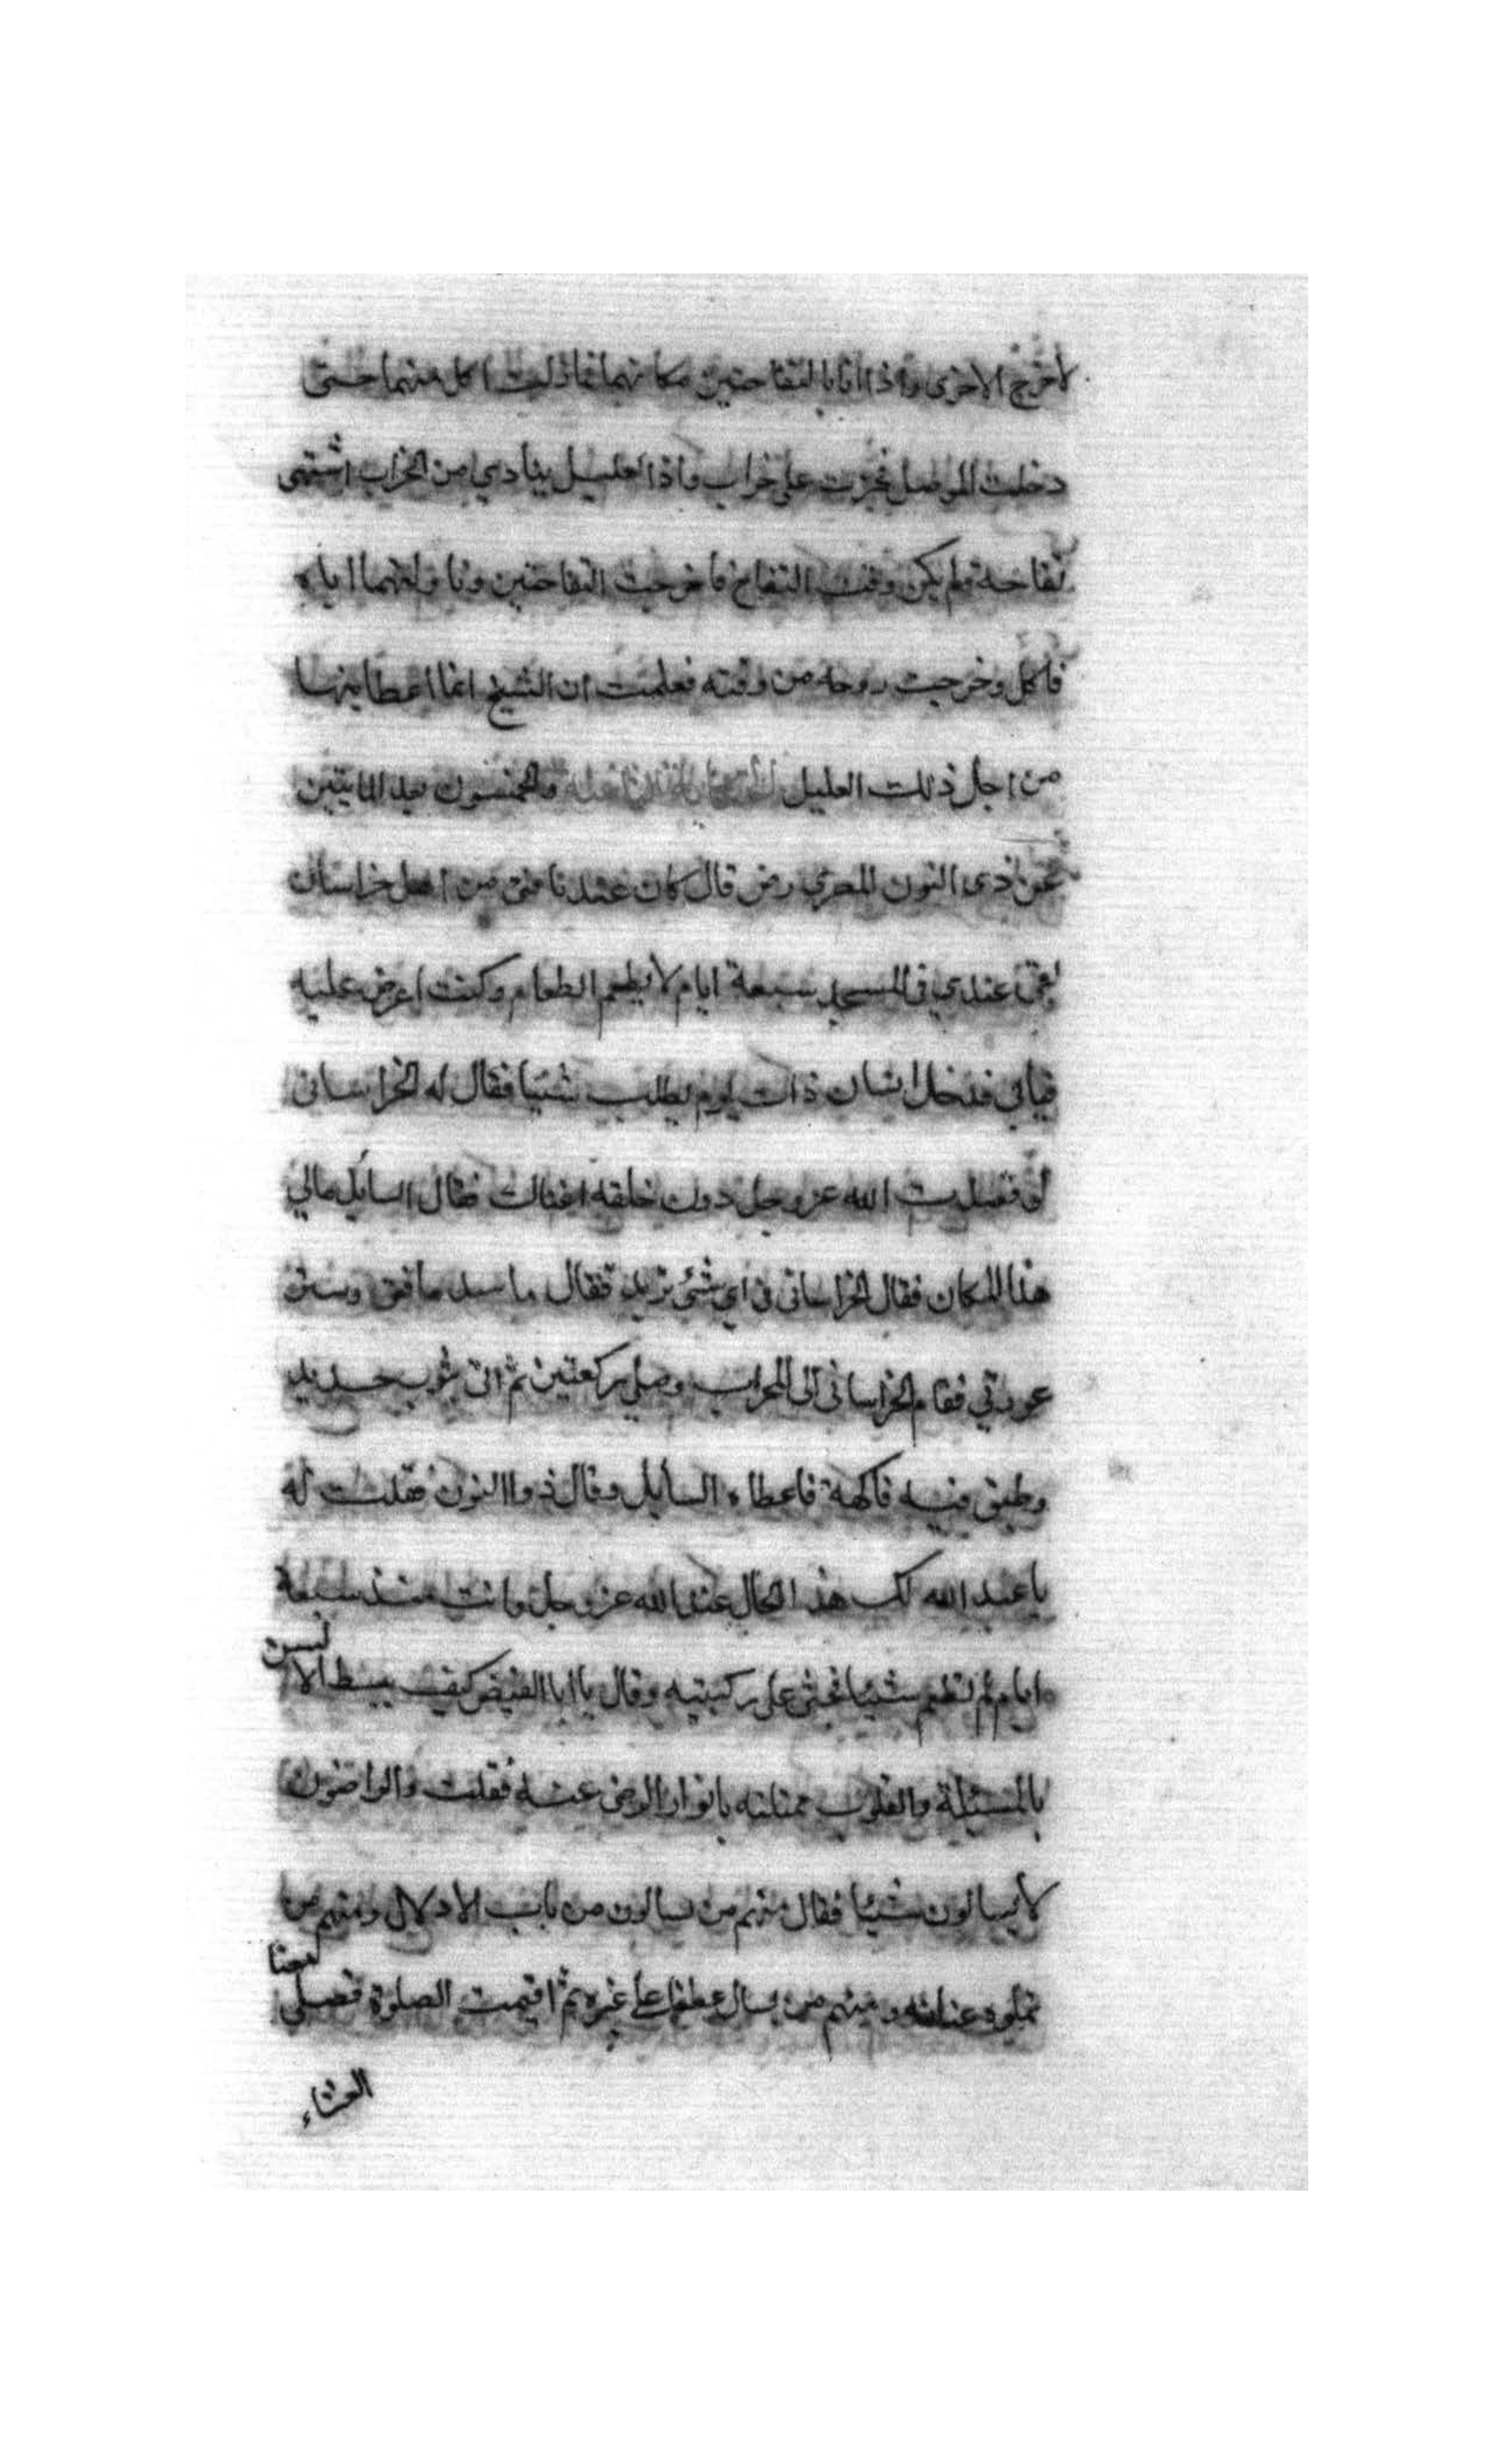 لاخرج الاخرى واذا انا بالتفاحتين مكانهما فما زلت اكل منهما حتى
دخلت الموصل فجزت على خراب واذا العليل ينادي من الخراب اشتهى
تفاحة ولم يكن وقت التفاح فاخرجت التفاحتين وناولتهما اياه
فاكل وخرجت روحه من وقته فعلمت ان الشيخ انما اعطانيهما
من اجل ذلك العليل والخمسون بعد المايتين
عن ذى النون المصري رضى قال كان عندنا فتى من اهل خراسان
بقى عندي في المسجد سبعة ايام لا يطعم الطعام وكنت اعرض عليه
فيابي فدخل انسان ذات يوم يطلب شيئا فقال له الخراسانى
لو قصدت الله عز وجل دون خلقه اغناك فقال السايل مالي
هذا المكان فقال الخراسانى اي شئ تريد فقال ما سد فاقتى وستر
عورتي فقام الخراسانى الى المحراب وصلى ركعتين ثم اتى بثوب جديد
وطبق فيه فاكهة فاعطاه السايل وقال ذوا النون فقلت له
يا عبد الله لك هذا الحال عند الله عز وجل وانت منذ سبعة
ايام لم تطعم شيئا فجثى على ركبتيه وقال يا ابا الفيض كيف يبسط الالسن
بالمسئلة والقلوب ممتلئه بانوار الرضى عنه فقلت والراضون
لا يسالون شيئا فقال منهم من يسالون من باب الادلال ومنهم من
عنا لله ومنهم من يسال عطفا على غيره ثم اقيمت الصلوة فصلى معنا
العشاء